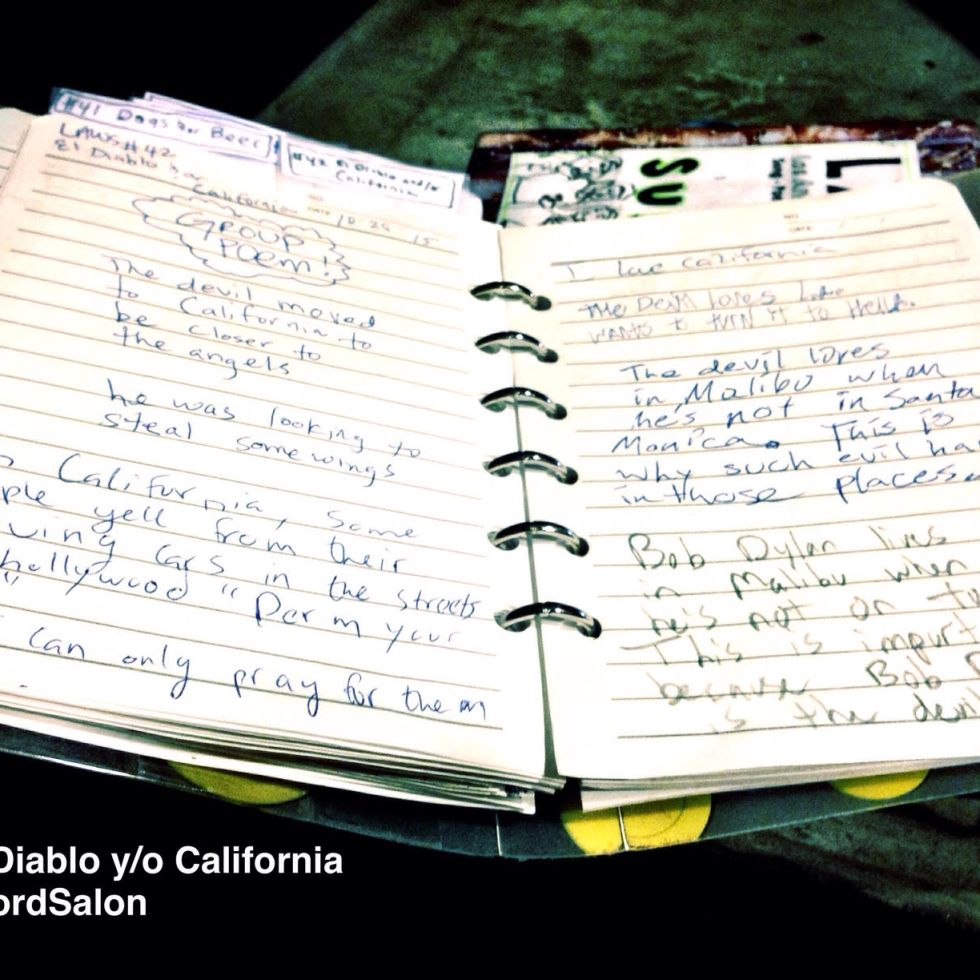 #41 Dogs or Beer
#42 El Diablo and/or
California
LAWS #42
El Diablo y/o
California
10 26 15
GROUP
POEM!
The devil moved
to California to
be closer to
the angels
he was looking to
steal some wings
California, some
ple yell from their
ving cars in the streets
hollywood "Perm your
"
can only pray for them
LA
SU
I love California
The Devil loves
wants to turn it to Hello.
The devil loves
in Malibu when
he's not in Santa
Monica. This is
why such evil ha
in those places.
Bob Dylan lives
in Malibu when
he's not on to
This is import
because Bob D
is the devil
Diablo y/o California
ordSalon